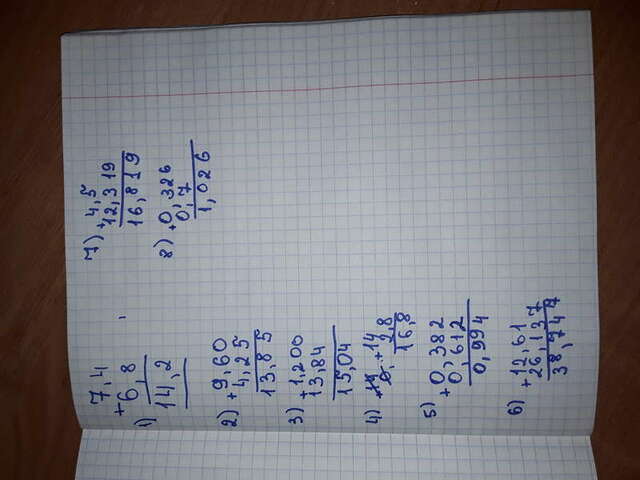 1) 7,4
+
6,8
14,2
2) + 9,60
4,25
13,85
3) + 1,200
13,84
15,04
4) + 14
2,8
16,8
5) + 0,382
0,612
0,994
6) + 12,61
26,137
38,747
7) + 4,5
12,319
16,819
8) + 0,326
0,7
1,026